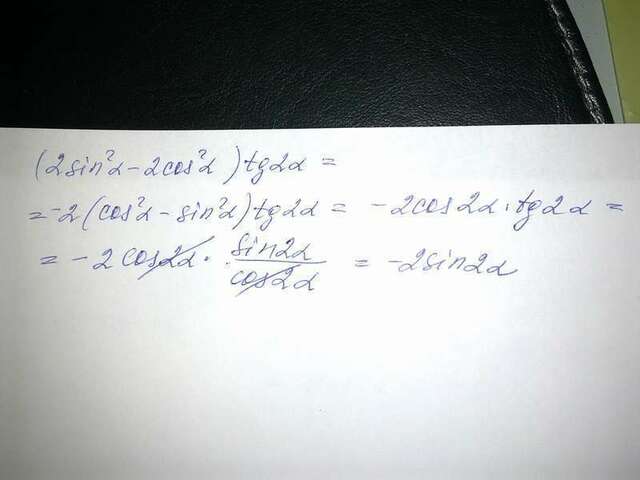 (2sin²α-2cos²α)tg2α =
=-2(cos²α-sin²α)tg2α = -2cos2α·tg2α =
= -2cos2α · sin2α/cos2α = -2sin2α